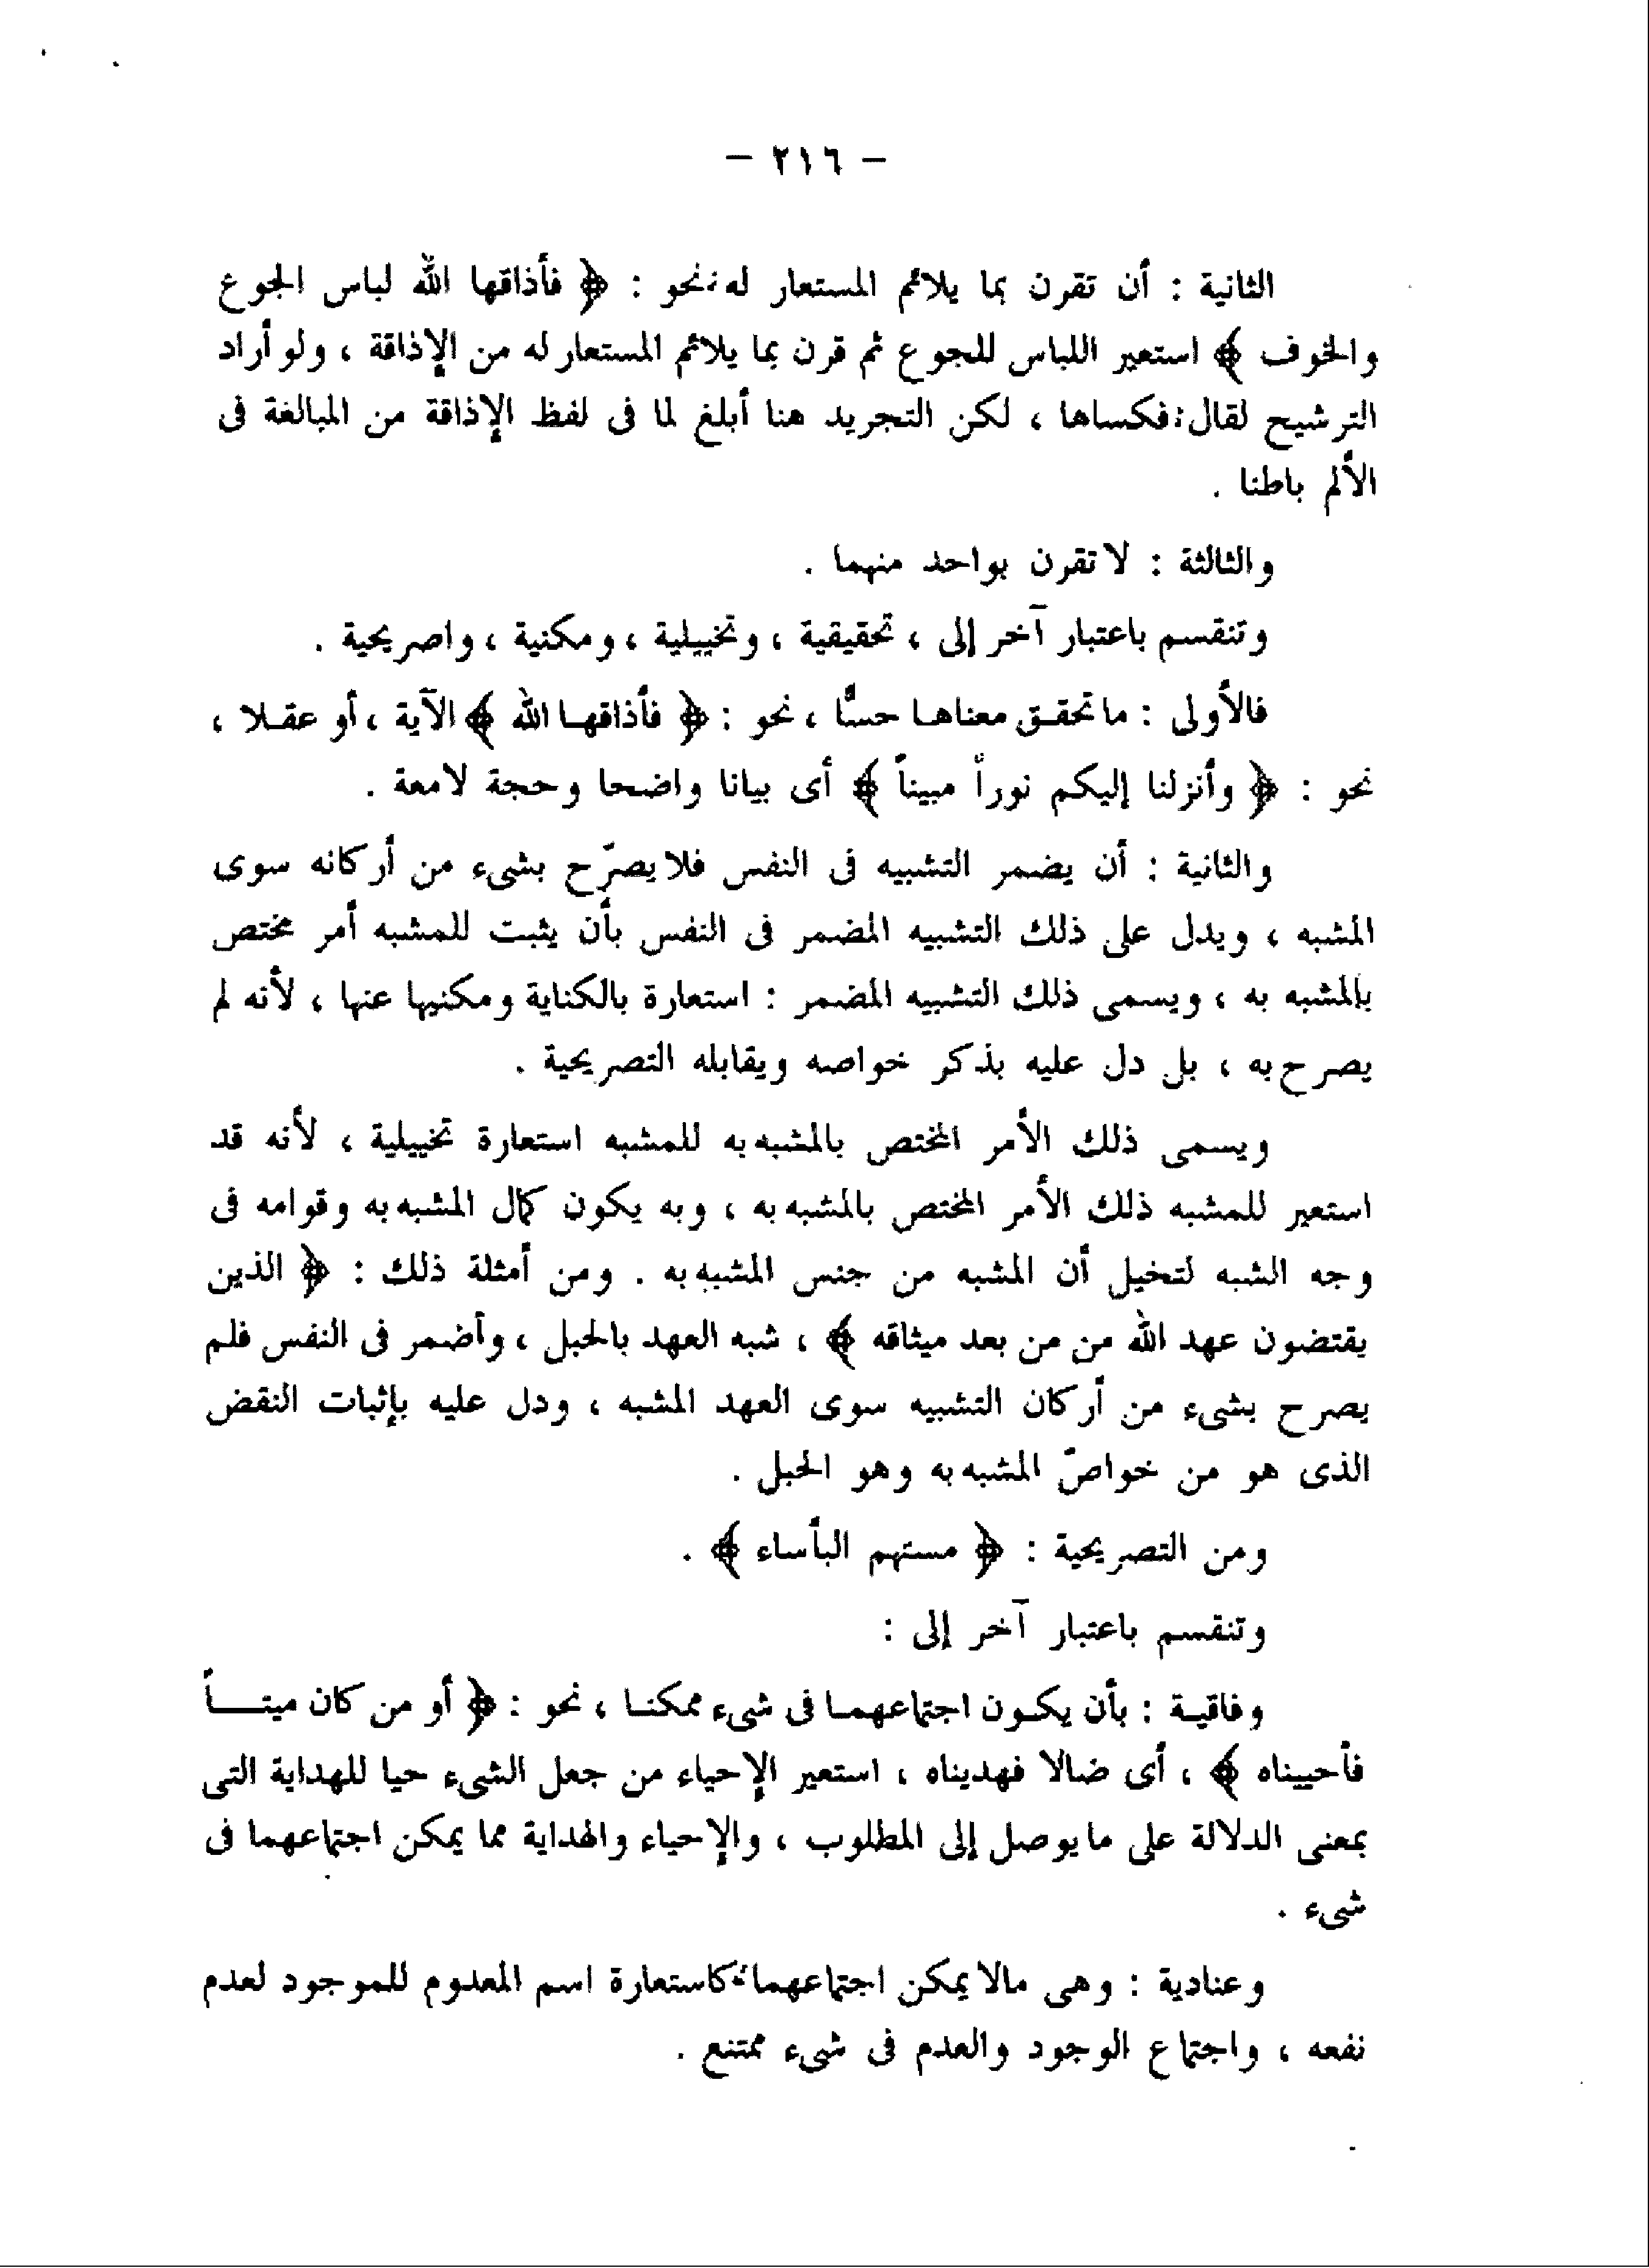 — ٢١٦ —
الثانية : أن تقرن بما يلائم المستعار له ، نحو : ﴿ فأذاقها الله لباس الجوع
والخوف ﴾ استعير اللباس للجوع ثم قرن بما يلائم المستعار له من الإذاقة ، ولو أراد
الترشيح لقال : فكساها ، لكن التجريد هنا أبلغ لما فى لفظ الإذاقة من المبالغة فى
الألم باطنا .
والثالثة : لا تقرن بواحد منهما .
وتنقسم باعتبار آخر إلى ، تحقيقية ، وتخييلية ، ومكنية ، واصريحية .
فالأولى : ما تحقـق معناهـا حسًّا ، نحو : ﴿ فأذاقهـا الله ﴾ الآية ، أو عقـلا ،
نحو : ﴿ وأنزلنا إليكم نوراً مبيناً ﴾ أى بيانا واضحا وحجة لامعة .
والثانية : أن يضمر التشبيه فى النفس فلا يصرّح بشىء من أركانه سوى
المشبه ، ويدل على ذلك التشبيه المضمر فى النفس بأن يثبت للمشبه أمر مختص
بالمشبه به ، ويسمى ذلك التشبيه المضمر : استعارة بالكناية ومكنيها عنها ، لأنه لم
يصرح به ، بل دل عليه بذكر خواصه ويقابله التصريحية .
ويسمى ذلك الأمر المختص بالمشبه به للمشبه استعارة تخييلية ، لأنه قد
استعير للمشبه ذلك الأمر المختص بالمشبه به ، وبه يكون كمال المشبه به وقوامه فى
وجه الشبه لتخيل أن المشبه من جنس المشبه به . ومن أمثلة ذلك : ﴿ الذين
يقتضون عهد الله من من بعد ميثاقه ﴾ ، شبه العهد بالحبل ، وأضمر فى النفس فلم
يصرح بشىء من أركان التشبيه سوى العهد المشبه ، ودل عليه بإثبات النقض
الذى هو من خواصّ المشبه به وهو الحبل .
ومن التصريحية : ﴿ مستهم البأساء ﴾ .
وتنقسم باعتبار آخر إلى :
وفاقيـة : بأن يكـون اجتماعهمـا فى شىء ممكنـا ، نحو : ﴿ أو من كان ميتـــاً
فأحييناه ﴾ ، أى ضالا فهديناه ، استعير الإحياء من جعل الشىء حيا للهداية التى
بمعنى الدلالة على ما يوصل إلى المطلوب ، والإحياء والهداية مما يمكن اجتماعهما فى
شىء .
وعنادية : وهى مالا يمكن اجتماعهما ، كاستعارة اسم المعدوم للموجود لعدم
نفعه ، واجتماع الوجود والعدم فى شىء ممتنع .